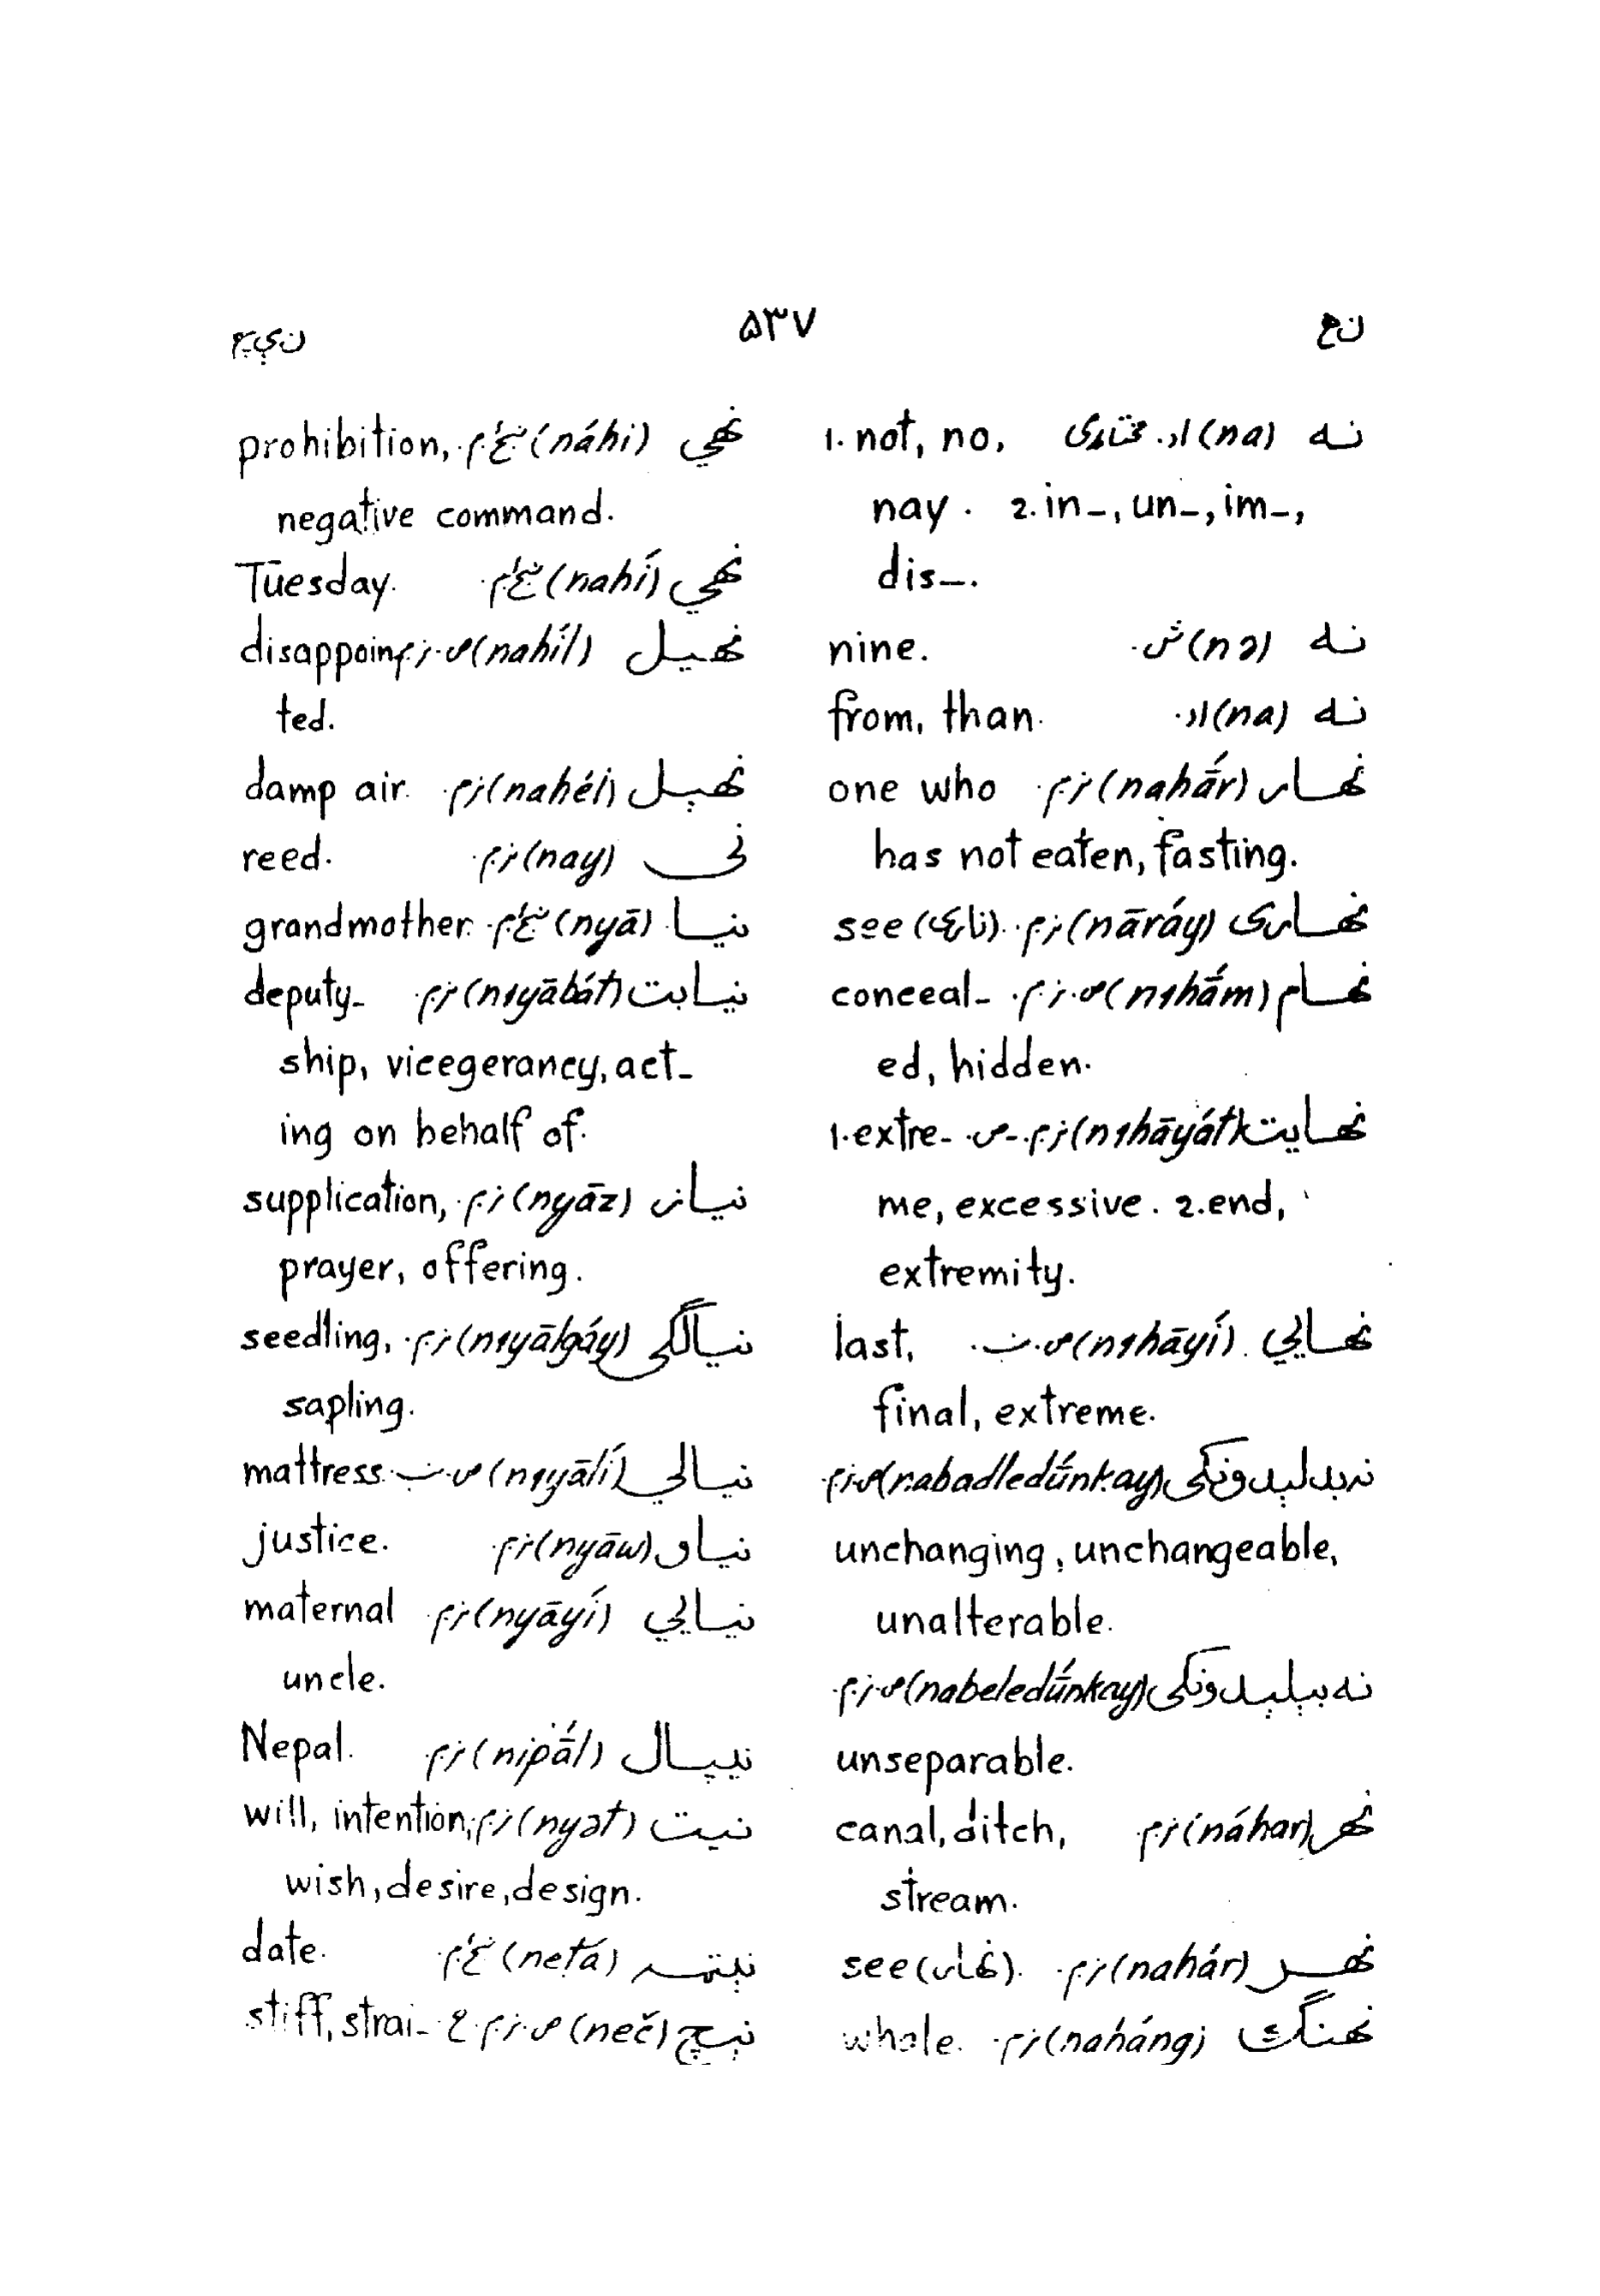 نه ۵۳۷ نېچ
نه (na) اد. مختاړی 1. not, no,
nay. 2. in–, un–, im–,
dis–.
نه (nə) ش. nine.
نه (na) اد. from, than.
نهار (nahā́r) ن.م. one who
has not eaten, fasting.
نهاری (nāráy) ن.م. see (ناری).
نهام (nıhā́m) ص.ن.م. conceal-
ed, hidden.
نهايت (nıhāyát) ن.م.-ص. 1. extre-
me, excessive. 2. end,
extremity.
نهايي (nıhāyí) ص.ب. last,
final, extreme.
نه بدلېدونکی (nabadledū́nkay) ص.ن.م.
unchanging, unchangeable,
unalterable.
نه بېلېدونکی (nabeledū́nkay) ص.ن.م.
unseparable.
نهر (náhar) ن.م. canal, ditch,
stream.
نهر (nahár) ن.م. see (نهار).
نهنگ (naháng) ن.م. whale.
نهي (náhi) prohibition,
negative command.
نهي (nahí) Tuesday.
نهيل (nahíl) ص.ن.م. disappoin-
ted.
نهېل (nahél) ن.م. damp air.
نی (nay) ن.م. reed.
نيا (nyā) grandmother.
نيابت (nıyābát) ن.م. deputy-
ship, vicegerancy, act-
ing on behalf of.
نياز (nyāz) ن.م. supplication,
prayer, offering.
نيالګی (nıyālgáy) ن.م. seedling,
sapling.
نيالي (nıyālí) ص.ب. mattress.
نياو (nyāw) ن.م. justice.
نيايي (nyāyí) ن.م. maternal
uncle.
نيپال (nipā́l) ن.م. Nepal.
نيت (nyət) ن.م. will, intention,
wish, desire, design.
نېټه (neṭá) date.
نېچ (neč) ص.ن.م. ع stiff, strai-